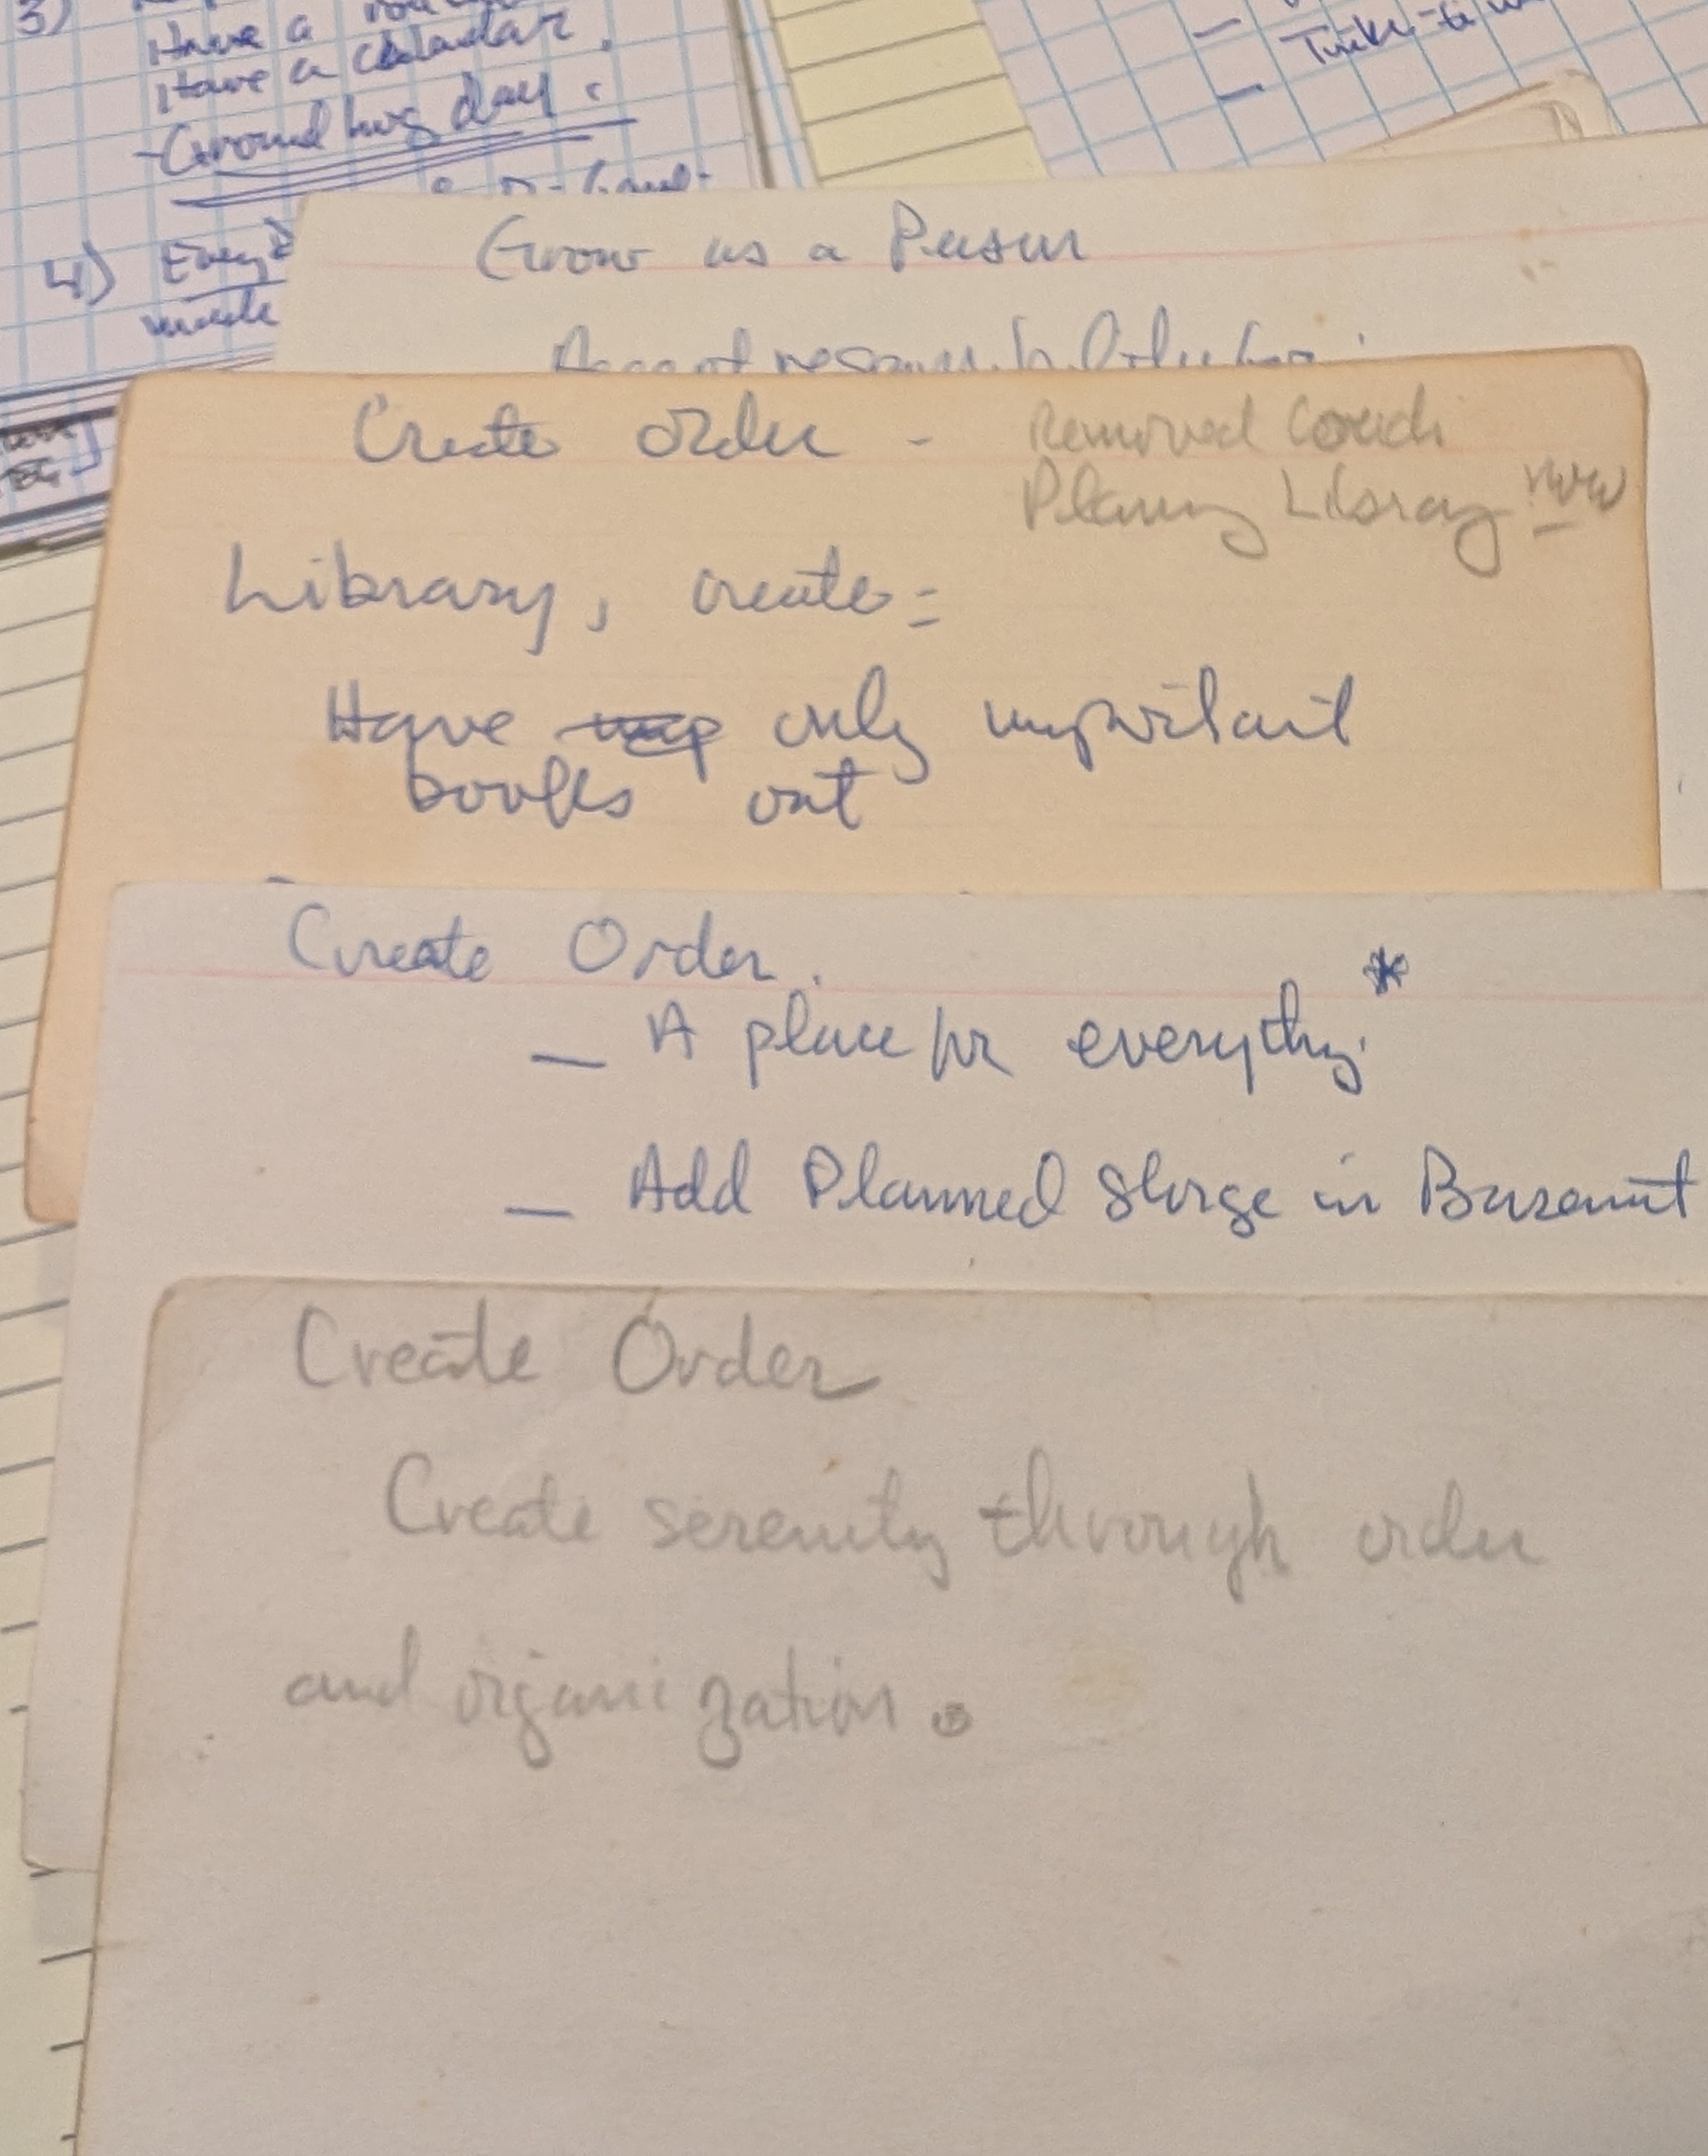 3)
Have a
Have a calendar.
- Ground hog day.
4) Every
made
Grow as a Person
Accept responsibility for
Create Order - Removed Couch
Planning Library now
Library, create =
Have only important
books out
Create Order.
— A place for everything. *
— Add Planned Storge in Basemnt
Create Order
Create serenity through order
and organization.